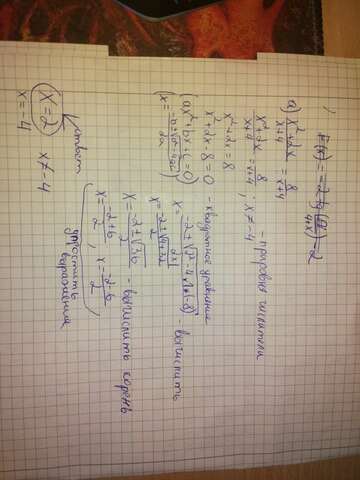 а) x²+2x / x+4 = 8 / x+4
x²+2x / x+4 = 8 / x+4 ; x ≠ -4 - приравни числители
x²+2x = 8
x²+2x-8=0 - квадратное уравнение
(ax²+bx+c=0)
(x = -b±√b²-4ac / 2a)
x = -2±√2²-4×1×(-8) / 2×1 - вычислить
x = -2±√4+32 / 2
x = -2±√36 / 2 - вычислить корень
x = -2+6 / 2 , x = -2-6 / 2
упростить выражения
x=2 x≠-4
x=-4
ответ